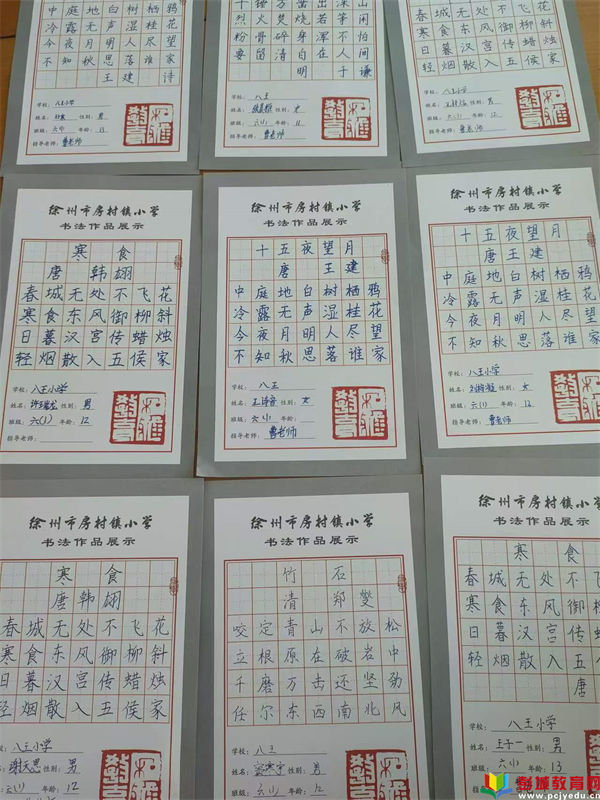 中庭地白树栖鸦
冷露无声湿桂花
今夜月明人尽望
不知秋思落谁家
王建诗
学校：八王小学
姓名：
性别：男
班级：六(1) 年龄：13
指导老师：曹老师
烈火焚烧若等闲
粉骨碎身浑不怕
要留清白在人间
明 于谦
学校：八王
姓名：
性别：女
班级：六(1) 年龄：11
指导老师：曹老师
春城无处不飞花
寒食东风御柳斜
日暮汉宫传蜡烛
轻烟散入五侯家
学校：八王小学
姓名：
性别：男
班级：六(1) 年龄：12
指导老师：曹老师
徐州市房村镇小学
书法作品展示
寒食
唐 韩翃
春城无处不飞花
寒食东风御柳斜
日暮汉宫传蜡烛
轻烟散入五侯家
学校：八王小学
姓名：
性别：男
班级：六(1) 年龄：12
指导老师：
徐州市房村镇小学
书法作品展示
十五夜望月
唐 王建
中庭地白树栖鸦
冷露无声湿桂花
今夜月明人尽望
不知秋思落谁家
学校：八王
姓名：
性别：女
班级：六(1) 年龄：
指导老师：曹老师
徐州市房村镇小学
书法作品展示
十五夜望月
唐 王建
中庭地白树栖鸦
冷露无声湿桂花
今夜月明人尽望
不知秋思落谁家
学校：八王小学
姓名：
性别：女
班级：六(1) 年龄：12
指导老师：曹老师
徐州市房村镇小学
书法作品展示
寒食
唐 韩翃
春城无处不飞花
寒食东风御柳斜
日暮汉宫传蜡烛
轻烟散入五侯家
八王小学
谢天思 性别：男
六(1) 年龄：12
徐州市房村镇小学
书法作品展示
竹石
清 郑燮
咬定青山不放松
立根原在破岩中
千磨万击还坚劲
任尔东西南北风
学校：八王
姓名：
性别：男
班级：六(1) 年龄：12
徐州市房村镇小学
书法作品展示
寒食
春城无处不飞
寒食东风御柳
日暮汉宫传
轻烟散入五
唐
学校：八王小学
姓名：王子一 性别：男
班级：六(1) 年龄：13
彭城教育网
www.pcjyedu.cn